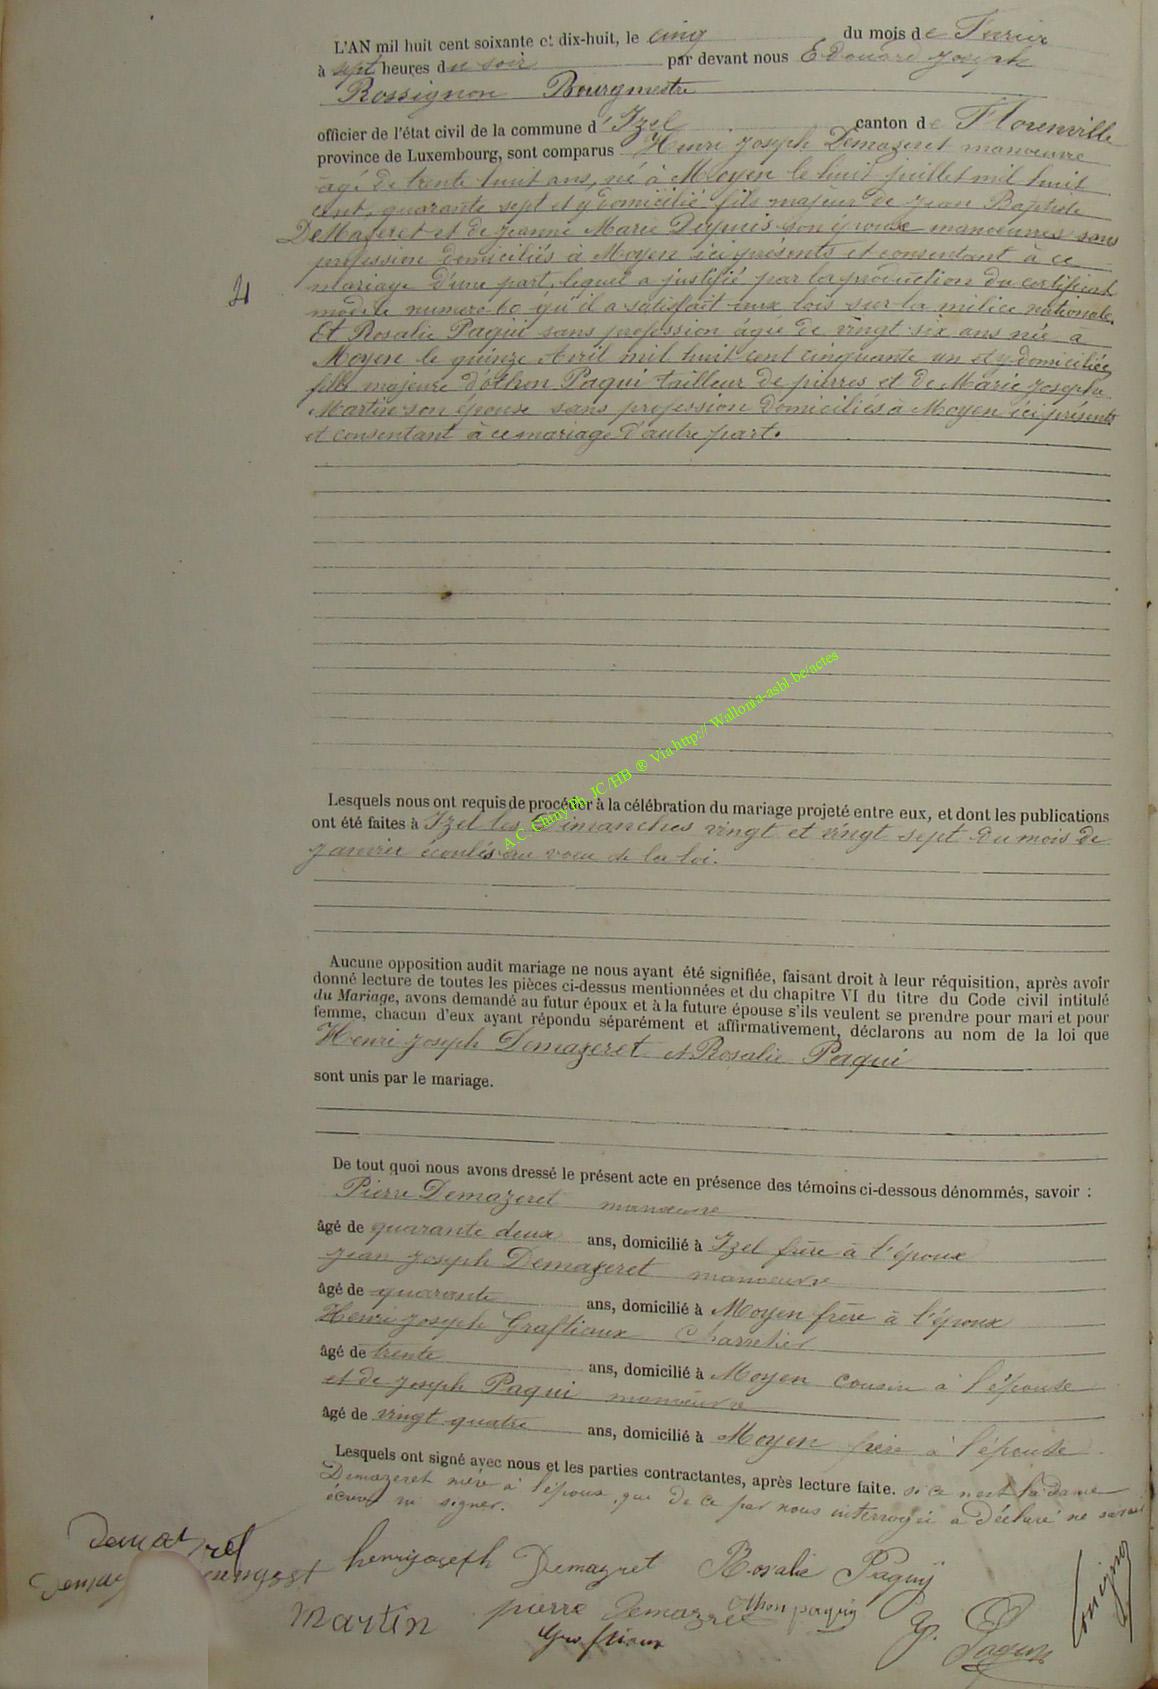 L'AN mil huit cent soixante et dix-huit, le cinq du mois de Fevrier
à sept heures du soir par devant nous Edouard Joseph
Rossignon Bourgmestre
officier de l'état civil de la commune d'Izel canton de Florenville
province de Luxembourg, sont comparus Henri Joseph Demazeret manoeuvre
âgé de trente huit ans, né à Moyen le huit juillet mil huit
cent quarante sept et y domicilié fils majeur de Jean Baptiste
DeMazeret et de Jeanne Marie Dupuis son épouse manoeuvres sans
profession domiciliés à Moyen ici présents et consentant à ce
mariage d'une part, lequel a justifié par la production du certificat
modèle numero 60 qu'il a satisfait aux lois sur la milice nationale.
21
Et Rosalie Paqui sans profession âgée de vingt six ans née à
Moyen le quinze Avril mil huit cent cinquante un et y domiciliée
fille majeure d'othon Paqui tailleur de pierres et de Marie Josephe
Martin son épouse sans profession domiciliés à Moyen ici présents
et consentant à ce mariage d'autre part.
A.C. Chiny Ph. JC/HB ® Via http:// Wallonia-asbl.be/actes
Lesquels nous ont requis de procéder à la célébration du mariage projeté entre eux, et dont les publications
ont été faites à Izel les Dimanches vingt et vingt sept du mois de
Janvier écoulés au voeu de la loi.
Aucune opposition audit mariage ne nous ayant été signifiée, faisant droit à leur réquisition, après avoir
donné lecture de toutes les pièces ci-dessus mentionnées et du chapitre VI du titre du Code civil intitulé
du Mariage, avons demandé au futur époux et à la future épouse s'ils veulent se prendre pour mari et pour
femme, chacun d'eux ayant répondu séparément et affirmativement, déclarons au nom de la loi que
Henri Joseph Demazeret et Rosalie Paqui
sont unis par le mariage.
De tout quoi nous avons dressé le présent acte en présence des témoins ci-dessous dénommés, savoir :
Pierre Demazeret manoeuvre
âgé de quarante deux ans, domicilié à Izel frère à l'époux
Jean Joseph Demazeret manoeuvre
âgé de quarante ans, domicilié à Moyen frère à l'époux
Henri Joseph Graftiaux Charretier
âgé de trente ans, domicilié à Moyen cousin à l'épouse
et de Joseph Paqui manoeuvre
âgé de vingt quatre ans, domicilié à Moyen frère à l'épouse
Lesquels ont signé avec nous et les parties contractantes, après lecture faite. si ce n'est la dame
Demazeret mère à l'époux que de ce par nous interrogée a déclaré ne savoir
écrire ni signer.
henrijoseph Demazret Rosalie Paquÿ
Martin pierre Demazret othon paquiÿ
Graftiaux J. Paquÿ